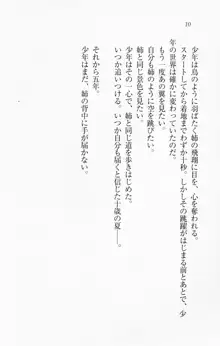 10
少年は鳥のように羽ばたく姉の飛翔に目を、心を奪われた。
スタートしてから着地までわずか十秒。しかしその跳躍がはじまる前とあとで、少
年の世界は確かに変わっていたのだ。
もう一度あの翼を見たい。
自分も姉のように空を跳びたい。
姉と同じ景色を見たい。
少年はその一心で、姉と同じ道を歩きはじめた。
いつか追いつける。いつか自分も届くと信じた十歳の夏――。
それから五年。
少年はまだ、姉の背中に手が届かない。